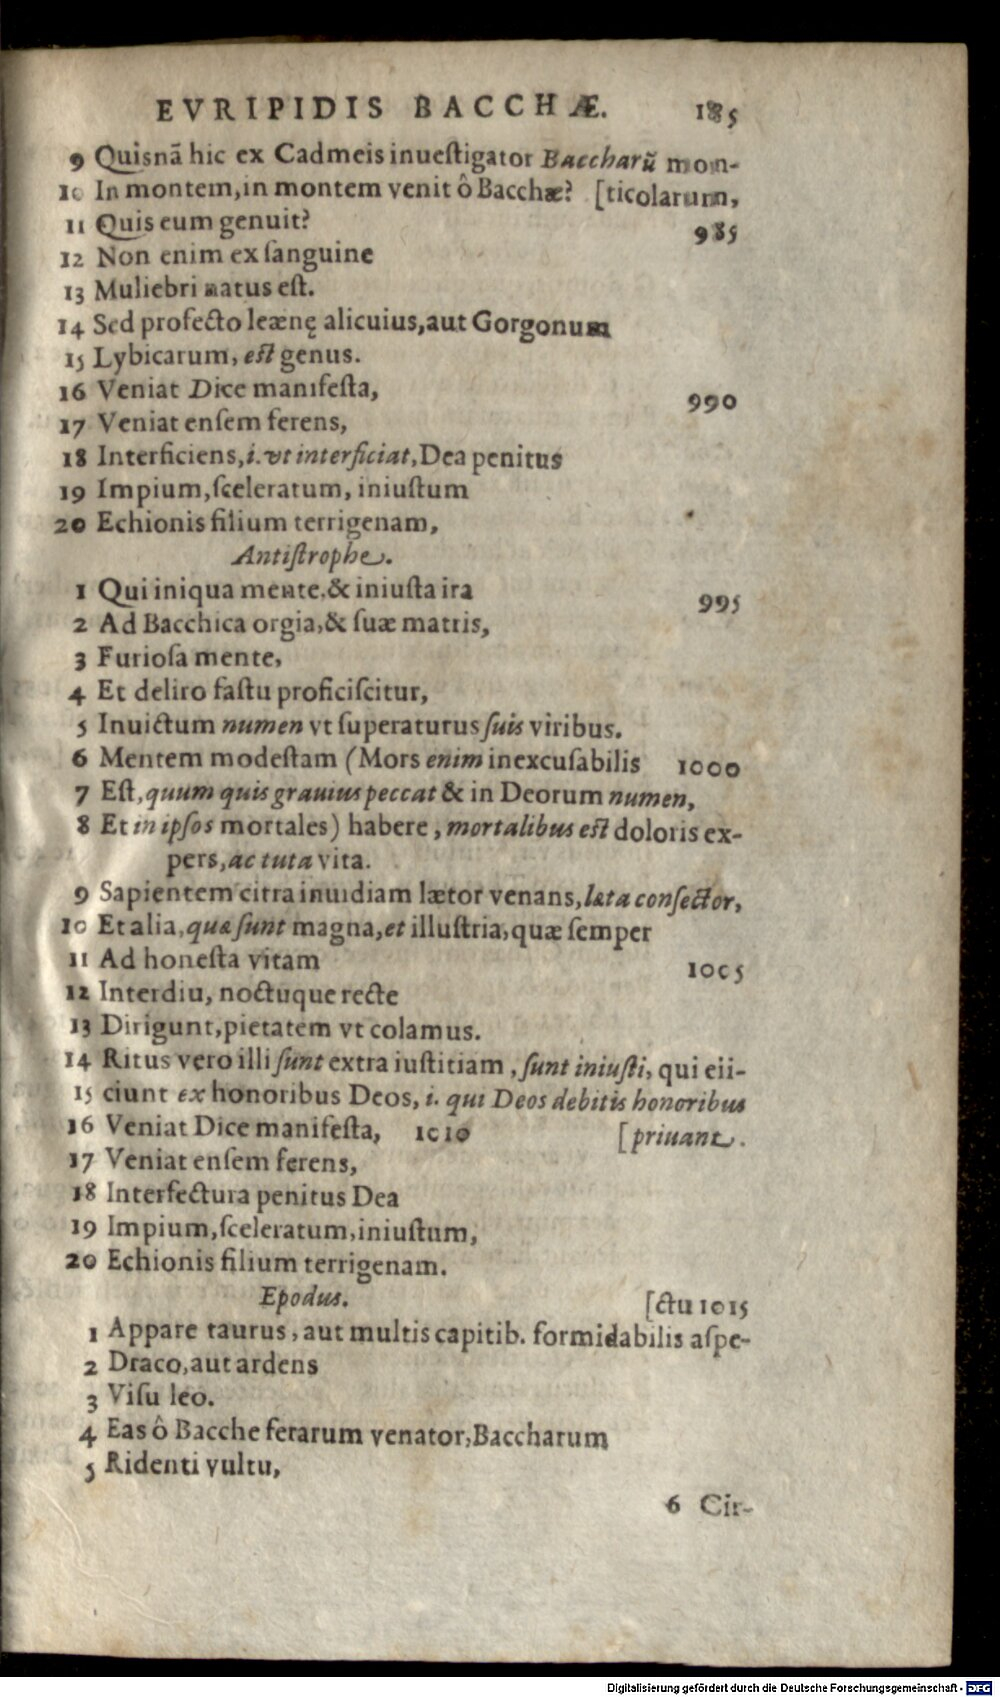 EVRIPIDIS BACCHÆ. 185
9 Quisnã hic ex Cadmeis inuestigator Baccharũ mon-
10 In montem, in montem venit ô Bacchæ? [ticolarum,
11 Quis eum genuit? 985
12 Non enim ex sanguine
13 Muliebri natus est.
14 Sed profecto leænę alicuius, aut Gorgonum
15 Lybicarum, est genus.
16 Veniat Dice manifesta, 990
17 Veniat ensem ferens,
18 Interficiens, i. vt interficiat, Dea penitus
19 Impium, sceleratum, iniustum
20 Echionis filium terrigenam,
Antistrophe.
1 Qui iniqua mente, & iniusta ira 995
2 Ad Bacchica orgia, & suæ matris,
3 Furiosa mente,
4 Et deliro fastu proficiscitur,
5 Inuictum numen vt superaturus suis viribus.
6 Mentem modestam (Mors enim inexcusabilis 1000
7 Est, quum quis grauius peccat & in Deorum numen,
8 Et in ipsos mortales) habere, mortalibus est doloris ex-
pers, ac tuta vita.
9 Sapientem citra inuidiam lætor venans, læta consector,
10 Et alia, quæ sunt magna, et illustria, quæ semper
11 Ad honesta vitam 1005
12 Interdiu, noctuque recte
13 Dirigunt, pietatem vt colamus.
14 Ritus vero illi sunt extra iustitiam, sunt iniusti, qui eii-
15 ciunt ex honoribus Deos, i. qui Deos debitis honoribus
16 Veniat Dice manifesta, 1010 [priuant.
17 Veniat ensem ferens,
18 Interfectura penitus Dea
19 Impium, sceleratum, iniustum,
20 Echionis filium terrigenam.
Epodus. [ctu 1015
1 Appare taurus, aut multis capitib. formidabilis aspe-
2 Draco, aut ardens
3 Visu leo.
4 Eas ô Bacche ferarum venator, Baccharum
5 Ridenti vultu,
6 Cir-
Digitalisierung gefördert durch die Deutsche Forschungsgemeinschaft - DFG